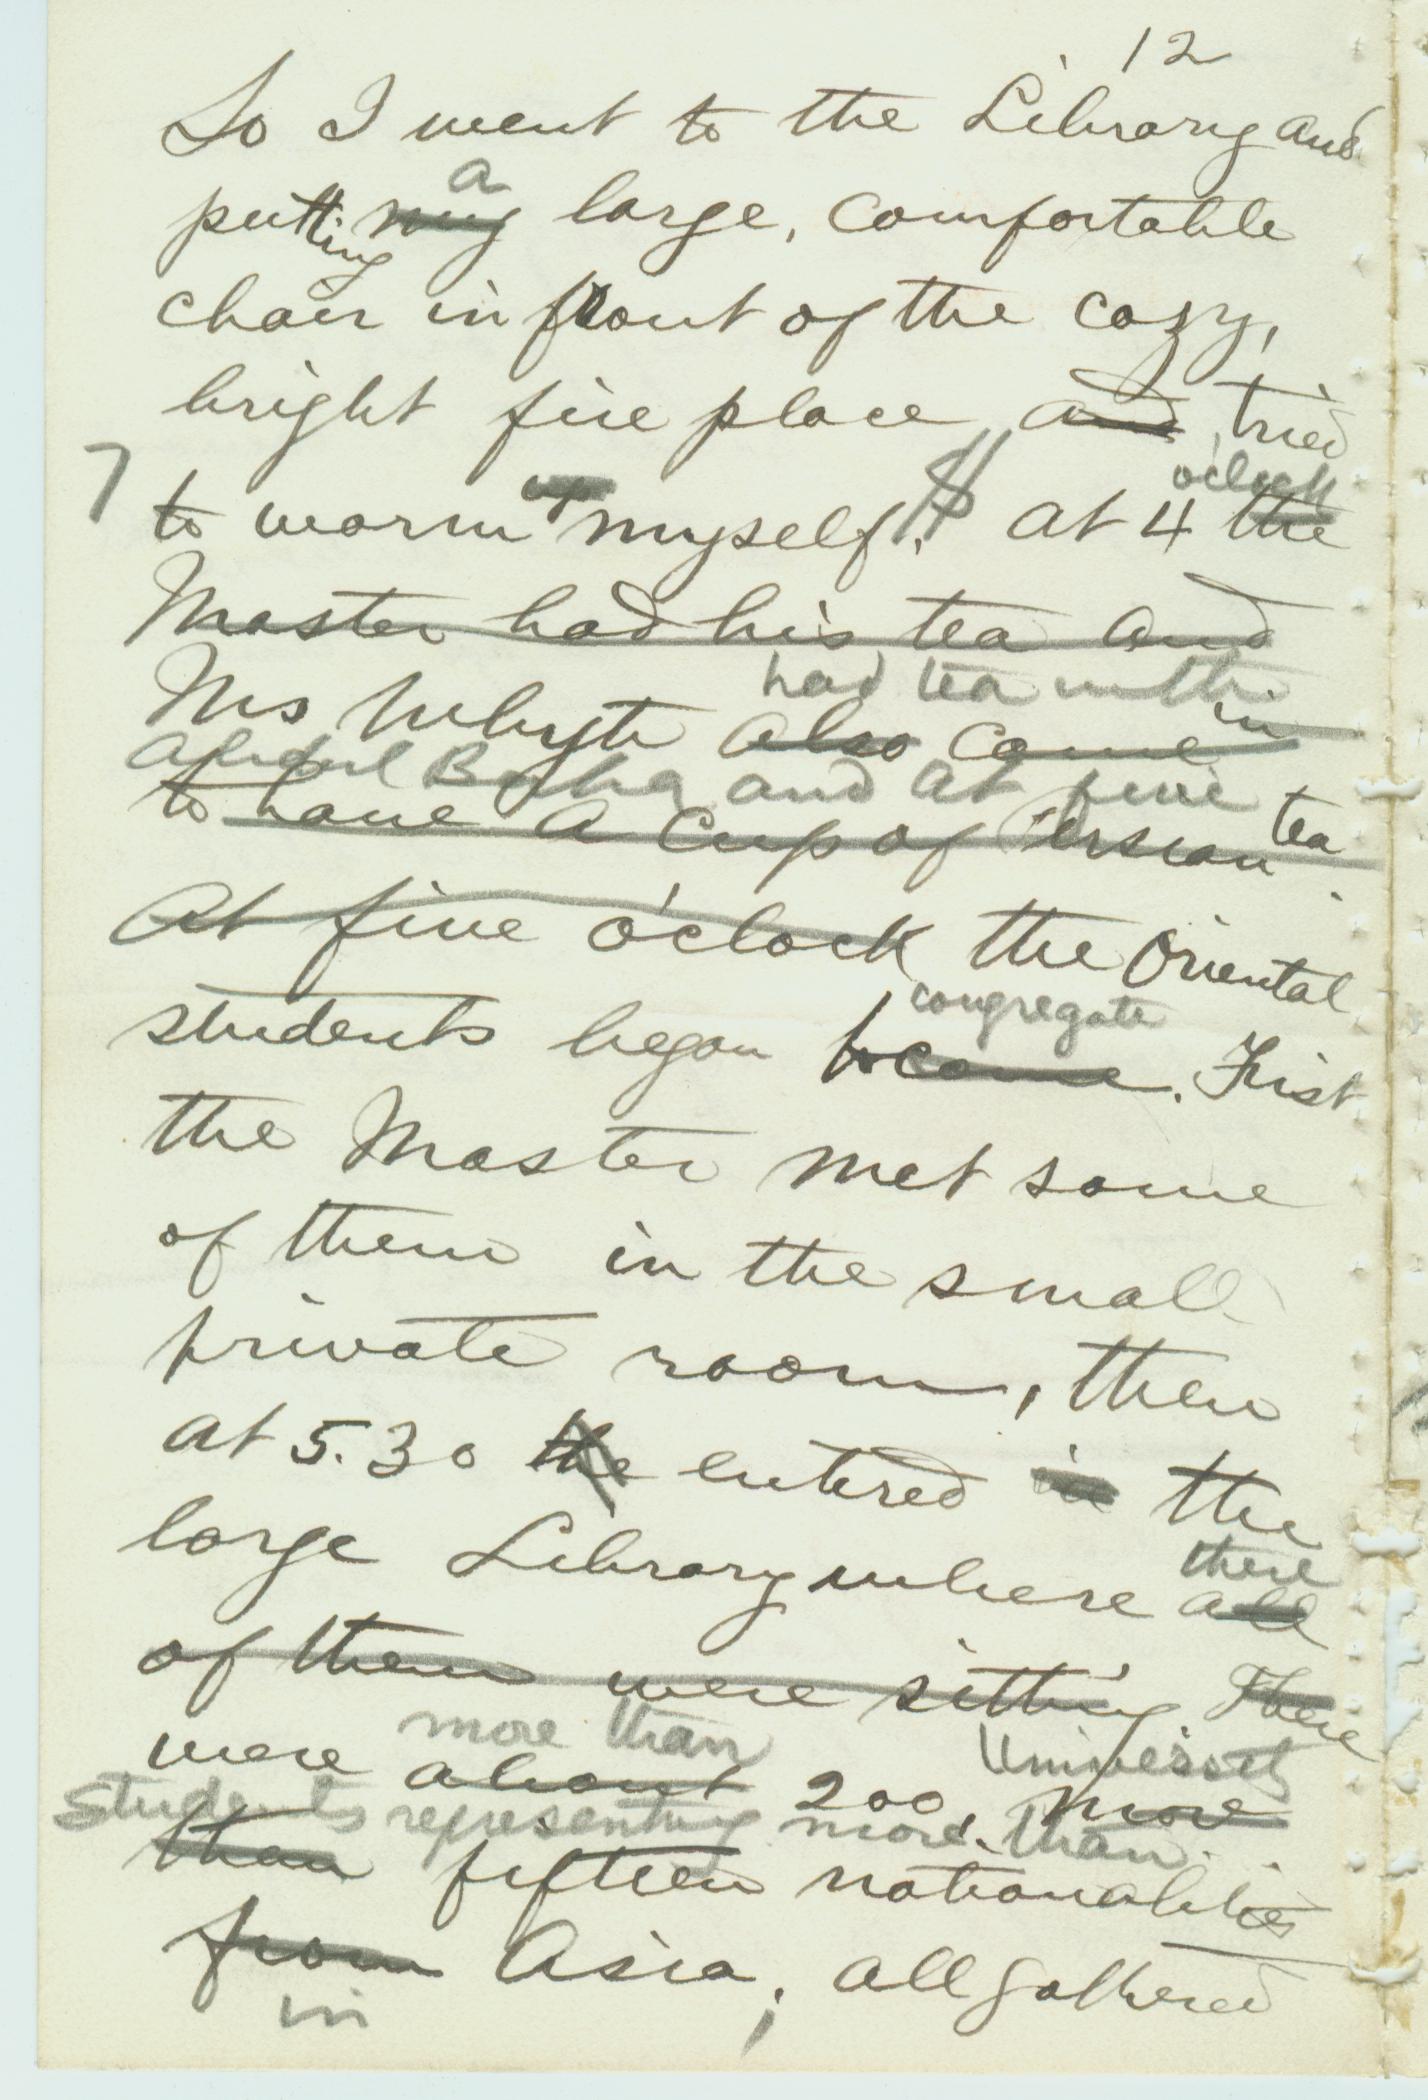 12
So I went to the Library and
a
putting my large, comfortable
chair in front of the cozy,
bright fire place and tried
o'clock
7 to warm up myself. at 4 the
Master had his tea and
had tea with
Mrs Whyte also came in
Abdul Baha and at five
to have a cup of Persian tea.
At five o'clock the Oriental
congregate
students began to come. First
the Master met some
of them in the small
private room, then
at 5.30 he entered in the
there
large Library where all
of them were sitting. There
more than University
were about 200, more
students representing more than
than fifteen nationalities
from Asia, all gathered
in